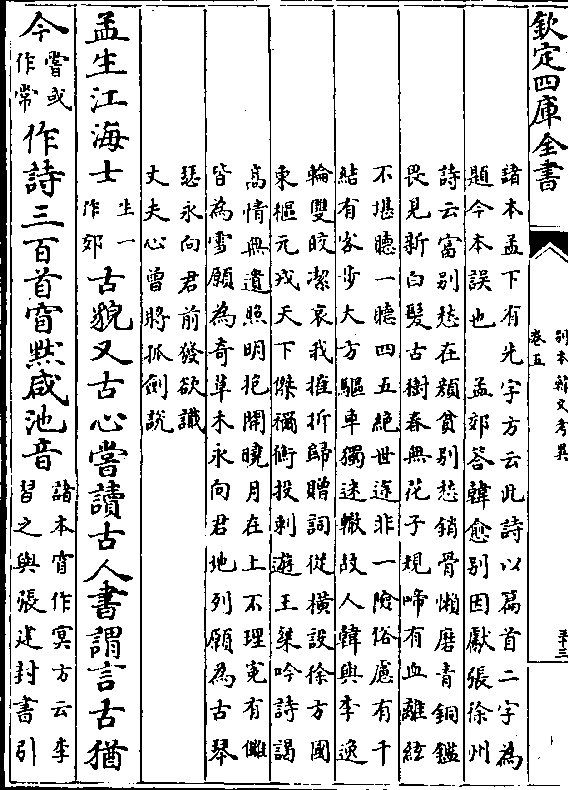 欽定四庫全書
別本韓文考異
卷五
諸本孟下有先字方云此詩以篇首二字為
題今本誤也　孟郊答韓愈别因獻張徐州
詩云富别愁在顔貧别愁銷骨懶磨青銅鑑
畏見新白髪古樹春無花子規啼有血離絃
不堪聽一聽四五絶世途非一險俗慮有千
結有客步大方驅車獨迷轍故人韓與李逸
輪雙皎潔哀我摧折歸贈詞從横設徐方國
東樞元戎天下傑禰衡投刺遊王粲吟詩謁
髙情無遺照明抱開曉月在上不埋寃有讎
皆為雪願為奇草木永向君地列願為古琴
瑟永向君前發欲識
丈夫心曾將孤劍說
孟生江海士生一作郊古貌又古心嘗讀古人書謂言古猶
今嘗或作常作詩三百首窅黙咸池音諸本窅作冥方云李習之與張建封書引